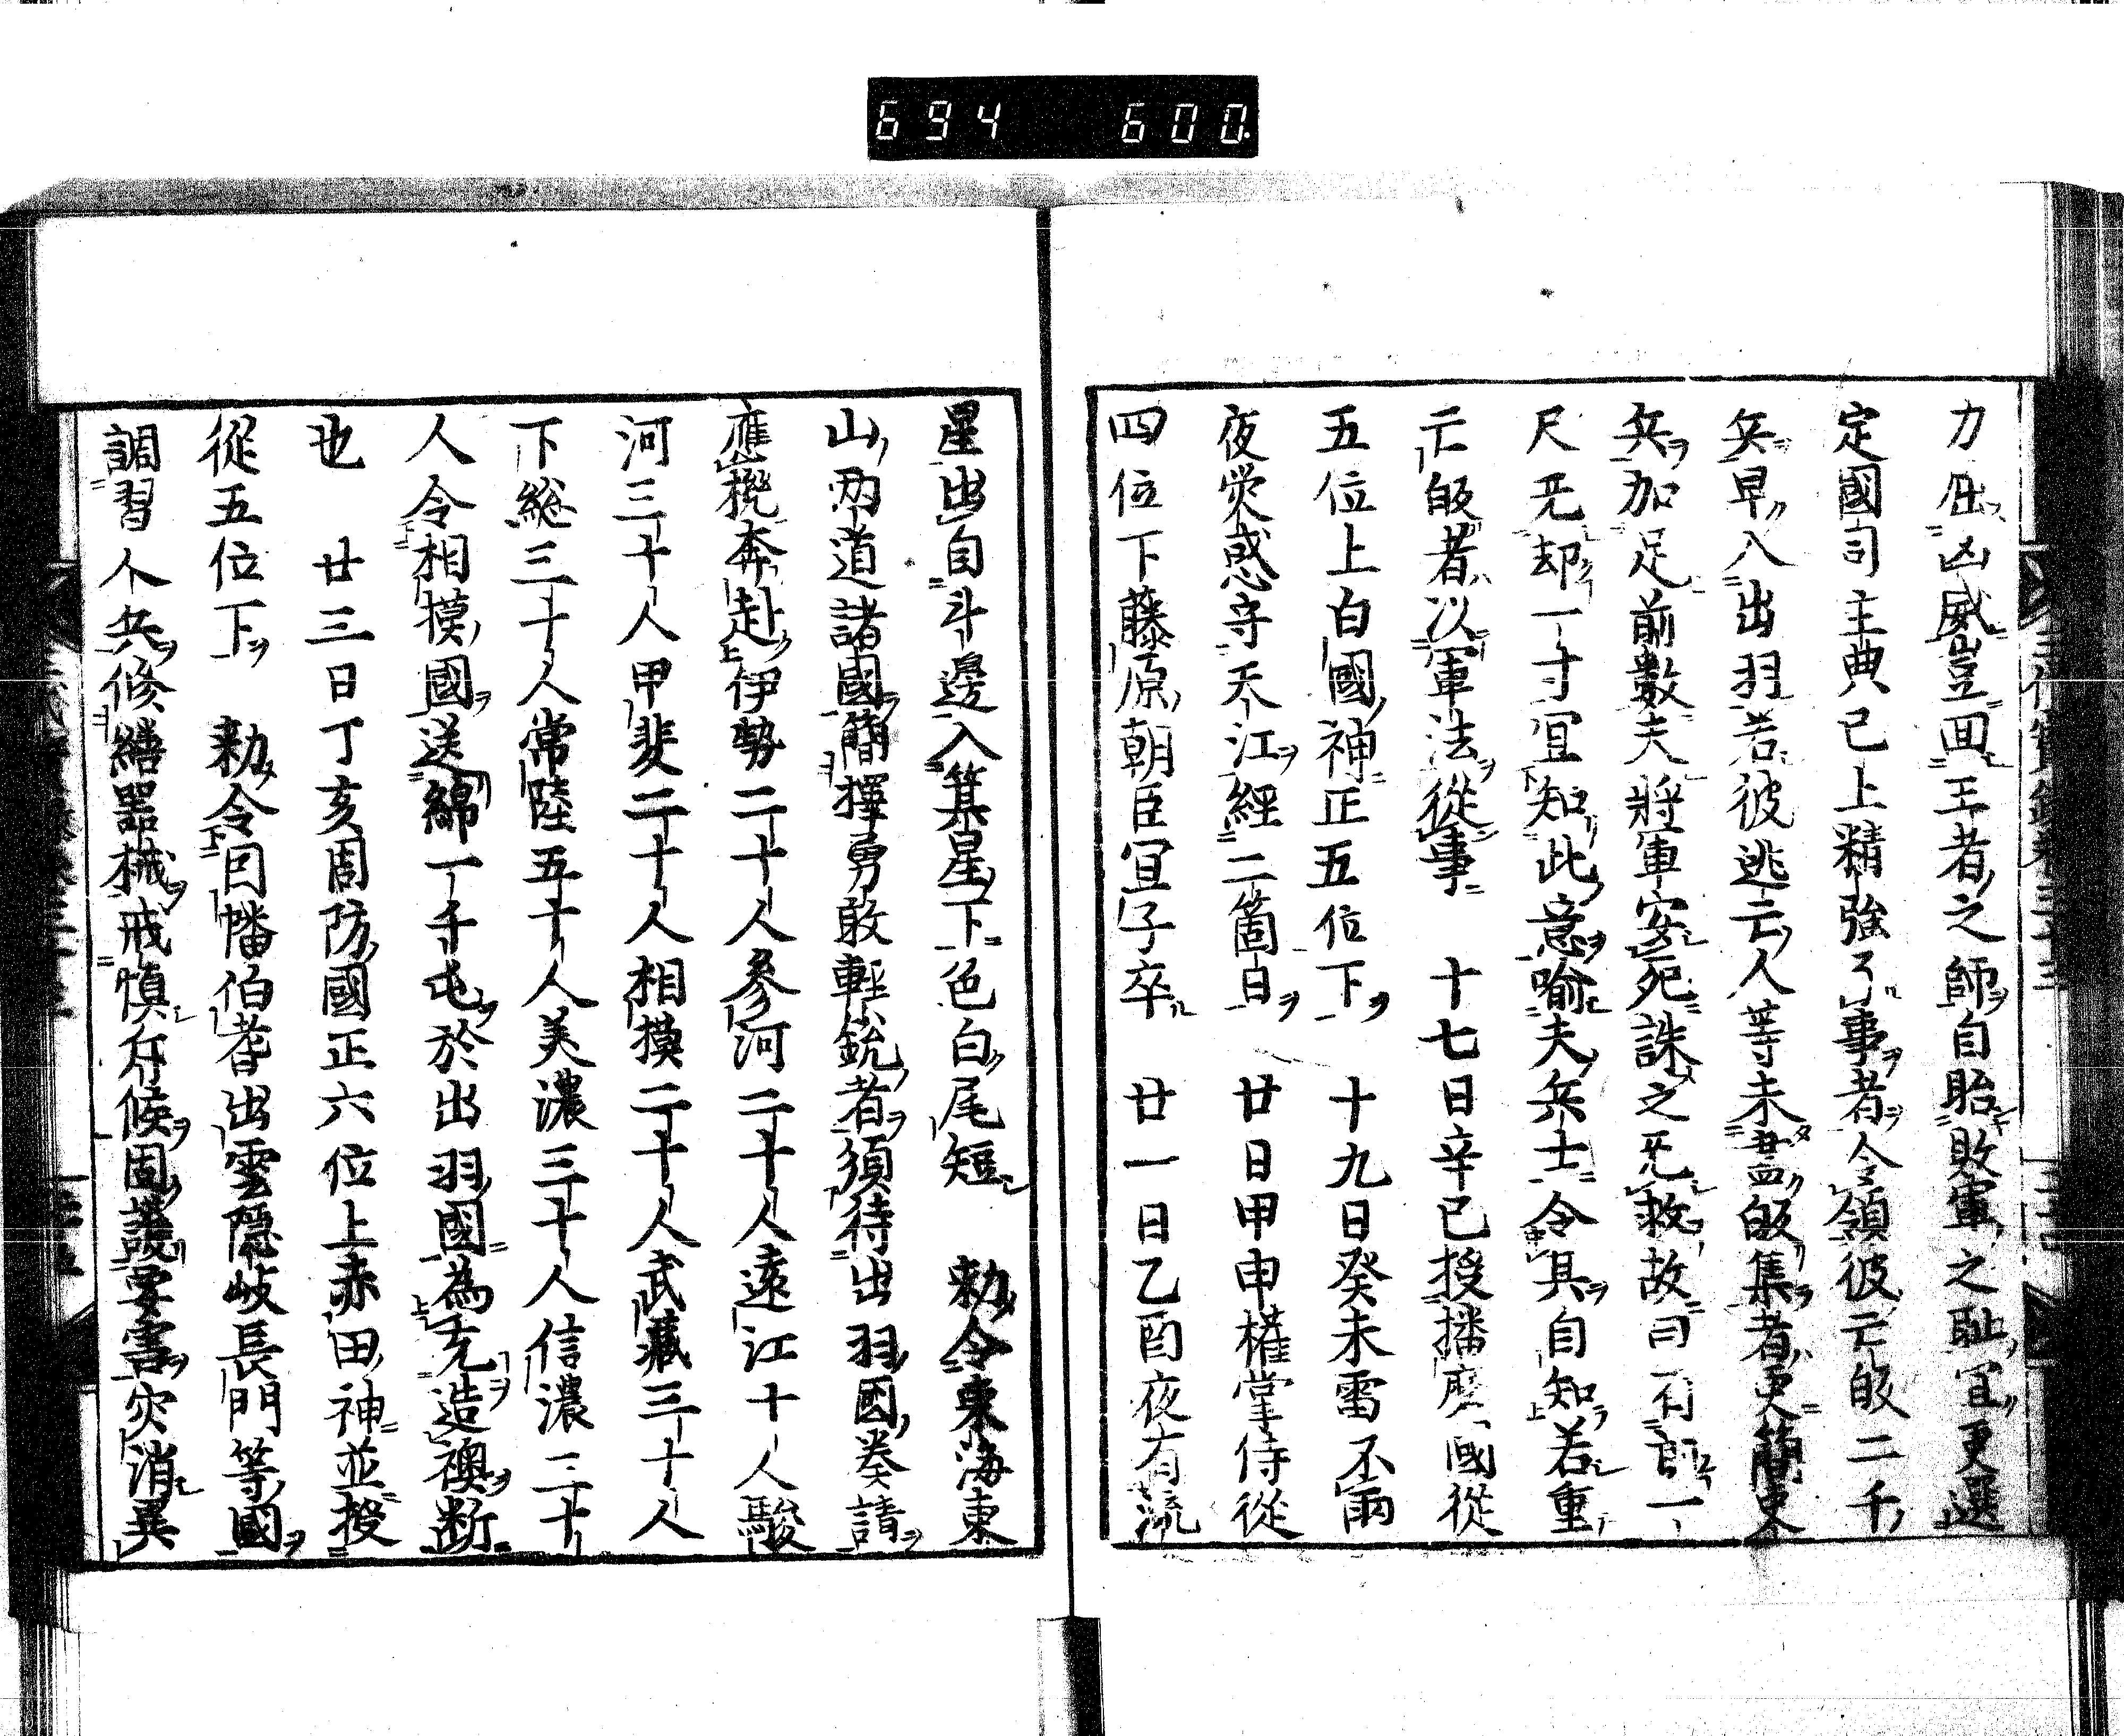 694 600.
力屈凶威豈回王者之師自貽敗軍之耻宜更選
定國司主典已上精強了事者令領彼亡皈二千
兵早入出羽若彼逃亡人等未盡皈集者更簡史
兵加足前數夫將軍安死誅之无救故曰有前一
尺无却一寸宜知此意喻夫兵士令其自知若重
亡皈者以軍法從事　十七日辛巳授播磨國從
五位上白國神正五位下　十九日癸未雷不雨
夜熒惑守天江經二箇日　廿日甲申權掌侍從
四位下藤原朝臣宜子卒　廿一日乙酉夜有流
星出自斗邊入箕星下色白尾短　勑令東海東
山兩道諸國簡擇勇敢輕銳者須待出羽國奏請
應機奔赴伊勢二十人參河二十人遠江十人駿
河三十人甲斐二十人相摸二十人武藏三十人
下総三十人常陸五十人美濃三十人信濃二十
人令相摸國送綿一千屯於出羽國為充造襖断
也　廿三日丁亥周防國正六位上赤田神並授
從五位下　勑令因幡伯耆出雲隱岐長門等國
調習人兵修繕器械戒慎斥候固護要害灾消異